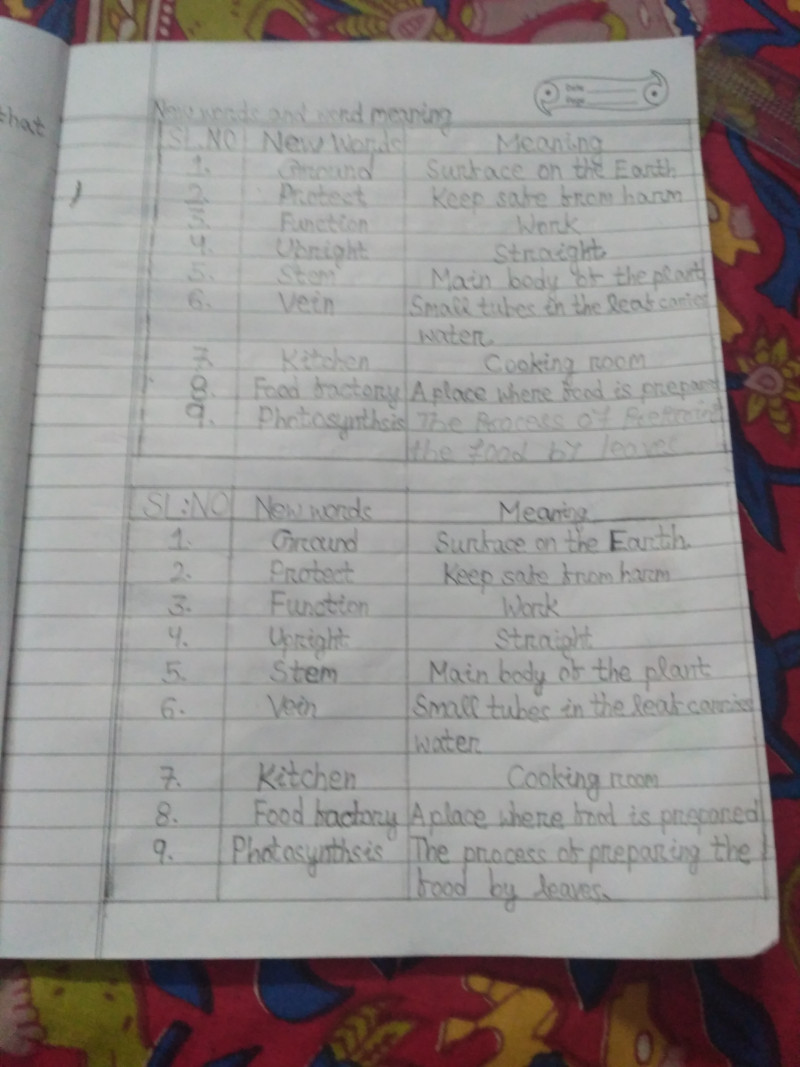 that
Date
Page
New words and word meaning
SL.NO New Words Meaning
1. Ground Surface on the Earth
2. Protect Keep safe from harm
3. Function Work
4. Upright Straight
5. Stem Main body of the plant
6. Vein Small tubes in the leaf carries
water.
7. Kitchen Cooking room
8. Food factory A place where food is prepared
9. Photosynthsis The Process of
the food by leaves
SL:NO New words Meaning
1. Ground Surface on the Earth.
2. Protect Keep safe from harm
3. Function Work
4. Upright Straight
5. Stem Main body of the plant
6. Vein Small tubes in the leaf carries
water
7. Kitchen Cooking room
8. Food factory A place where food is prepared
9. Photosynthsis The process of preparing the
food by leaves.